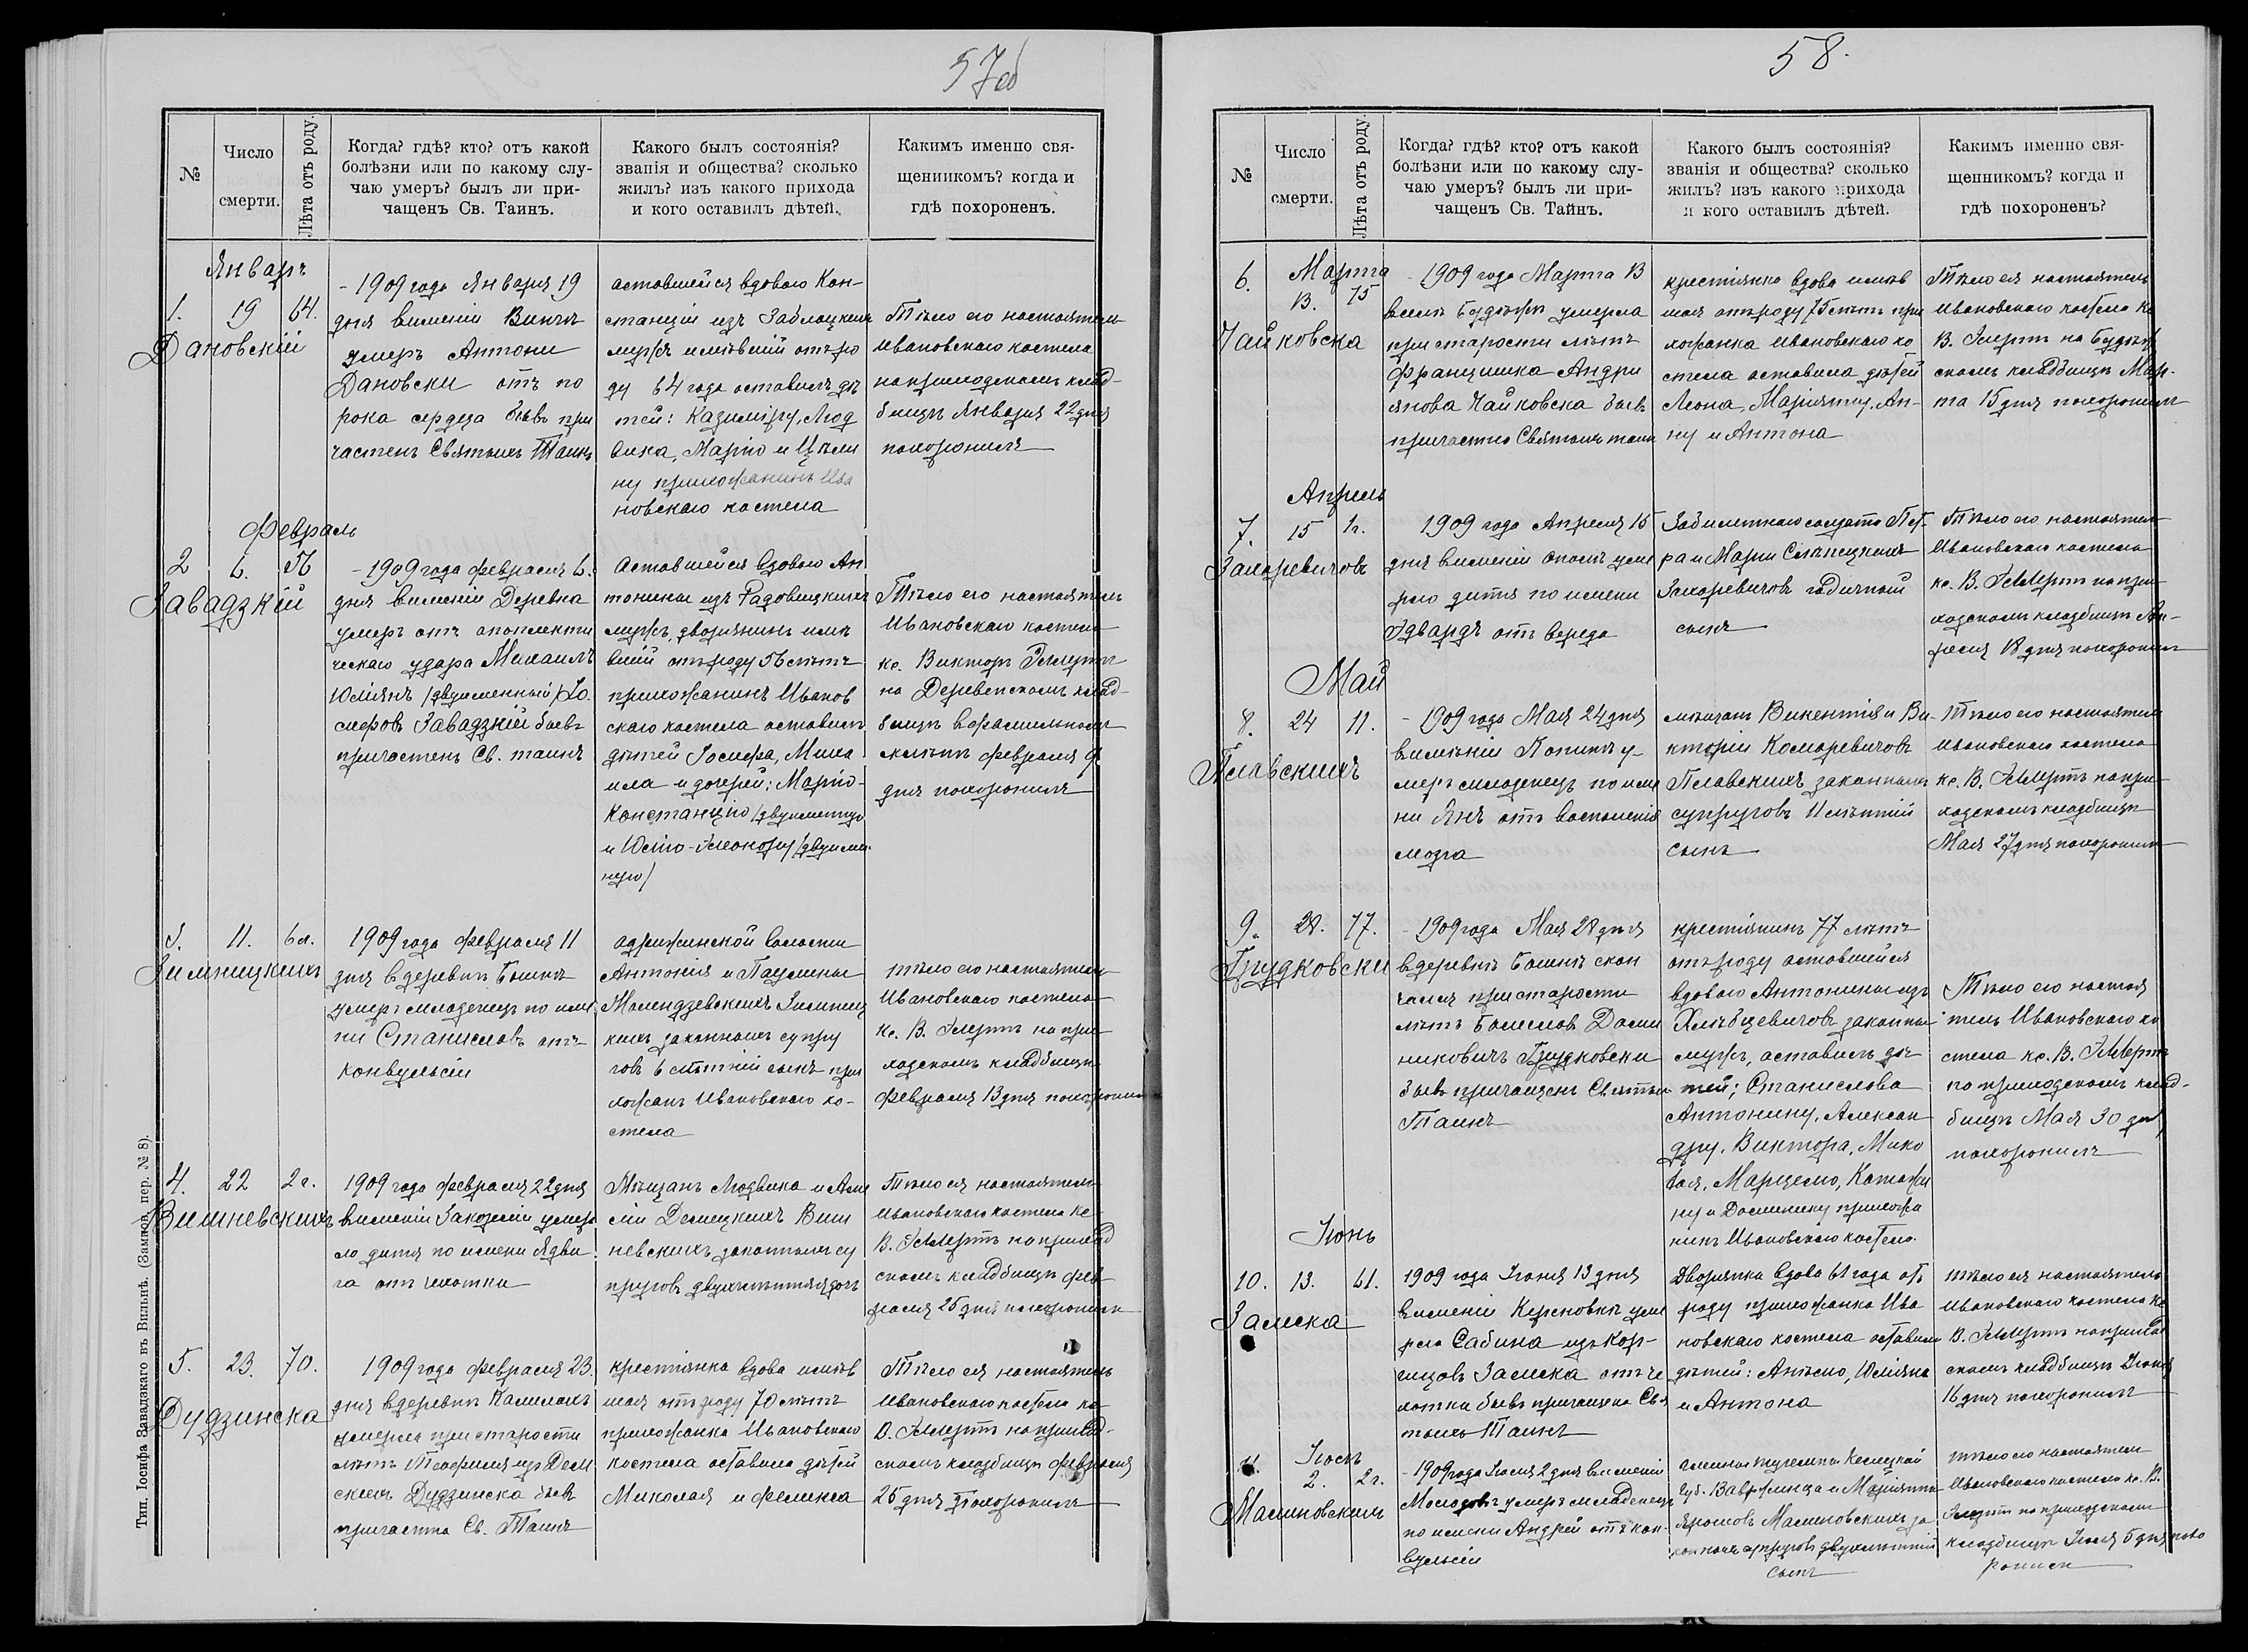 57об
№
Число
смерти.
Лѣта отъ роду.
Когда? гдѣ? кто? отъ какой
болѣзни или по какому слу-
чаю умеръ? былъ ли при-
чащенъ Св. Таинъ.
Какого былъ состоянія?
званія и общества? сколько
жилъ? изъ какого прихода
и кого оставилъ дѣтей.
Какимъ именно свя-
щенникомъ? когда и
гдѣ похороненъ.
Январь
1. 19 64.
Дановскій
- 1909 года Января 19
дня вимѣніи
умеръ Антони
Дановски отъ по
рока сердца бывъ при
частенъ Святыхъ Таинъ
аставшейся вдовою Кон-
станціи изъ Заблоцкихъ
мужъ имѣвшій отъ ро
ду 64 года оставилъ дѣ
тей: Казиміру, Люд
вика, Марію и Цели
ну прихожанинъ Ива
новскаго костела
Тѣло его настоятель
Ивановскаго костела
на приходскомъ клад-
бищѣ Января 22 дня
похоронилъ
Февраль
2 6. 56
Завадзкій
- 1909 года Февраля 6.
дня вимѣніи Деревна
умеръ отъ апоплекти
ческаго удара Михаилъ
Юліянъ /двуименный/ Іо
сифовъ Завадзкій бывъ
причастенъ Св. таинъ
Аставшейся вдовою Ан
тонины изъ Радовицкихъ
мужъ, дворянинъ имѣ
вшій отъ роду 56 лѣтъ
прихожанинъ Иванов
скаго костела оставилъ
дѣтей Іосифа, Миха
ила и дочерей: Марію-
Констанцію /двуименную
и Юлію-Элеонору /двуимен
ную/
Тѣло его настоятель
Ивановскаго костела
кс. Викторъ
на Деревенскомъ клад-
бищѣ въ фамильномъ
склепѣ Февраля 9
дня похоронилъ
3. 11. 6 л.
Зимницкихъ
1909 года Февраля 11
дня вдеревнѣ
умеръ младенецъ по име
ни Станиславъ отъ
конвульсіи
волости
Антонія и Паулины
Зимниц
кихъ законныхъ супру
говъ 6 лѣтній сынъ при
хожанъ Ивановскаго ко-
стела
тѣло его настоятель
Ивановскаго костела
кс. В. на при
ходскомъ кладбищѣ
Февраля 13 дня похоронилъ
4. 22 2 г.
Вишневскихъ
1909 года Февраля 22 дня
вимѣніи умер
ло дитя по имени Ядви
га отъ чахотки
Мѣщанъ Людвика и
Виш
невскихъ законныхъ су
пруговъ двухлѣтняя дочь
Тѣло ея настоятель
Ивановскаго костела кс.
В. на приход
скомъ кладбищѣ Фев-
раля 25 дня похоронилъ
5. 23. 70.
Дудзинска
1909 года Февраля 23.
дня вдеревнѣ
умерла при старости
лѣтъ Теофиля изъ
Дудзинска бывъ
причастна Св. Таинъ
крестіянка вдова имѣв
шая отъ роду 70 лѣтъ
прихожанка Ивановскаго
костела оставила дѣтей
Миколая и Феликса
Тѣло ея настоятель
Ивановскаго костела кс.
В. на приход-
скомъ кладбищѣ Февраля
25 дня похоронилъ
Тип. Іосифа Завадзкаго въ Вильнѣ. (Замков. пер. № 8).
58.
№
Число
смерти.
Лѣта отъ роду
Когда? гдѣ? кто? отъ какой
болѣзни или по какому слу-
чаю умеръ? былъ ли при-
чащенъ Св. Тайнъ.
Какого былъ состоянія?
званія и общества? сколько
жилъ? изъ какого прихода
и кого оставилъ дѣтей.
Какимъ именно свя-
щенникомъ? когда и
гдѣ похороненъ?
Марта
6. 13. 75
Чайковска
- 1909 года Марта 13
умерла
при старости лѣтъ
Францишка Андри
янова Чайковска бывъ
причастна Святыхъ таинъ
крестіянка вдова имѣв
шая отъ роду 75 лѣтъ при
хожанка Ивановскаго ко
стела оставила дѣтей
Леона, Маріянну, Ан-
ну и Антона
Тѣло ея настоятель
Ивановскаго костела кс
В. на
скомъ кладбищѣ Мар-
та 15 дня похоронилъ
Апрель
7. 15 1 г.
Захаревичовъ
1909 года Апреля 15
дня вимѣніи уме
рло дитя по имени
Эдвардъ отъ вереда
Забилетнаго солдата Пет
ра и Маріи
Захаревичовъ годичный
сынъ
Тѣло его настоятель
Ивановскаго костела
кс. В. на при
ходскомъ кладбищѣ Ап-
реля 18 дня похоронилъ
Май
8. 24 11.
Плавскихъ
- 1909 года Мая 24 дня
вимѣніи у-
меръ младенецъ по име
ни Янъ отъ воспаленія
мозга
мѣщанъ Викентія и Ви-
кторіи Комаревичовъ
Плавскихъ законныхъ
супруговъ 11 лѣтній
сынъ
Тѣло его настоятель
Ивановскаго костела
кс. В. на при-
ходскомъ кладбищѣ
Мая 27 дня похоронилъ
9. 28. 77.
Грудковски
- 1909 года Мая 28 дня
вдеревнѣ скон
чался при старости
лѣтъ Болеславъ Доми
никовичъ Грудковски
бывъ причащенъ Святыхъ
Таинъ
крестіянинъ 77 лѣтъ
отъ роду аставшейся
вдовою Антонины изъ
Хлѣбцевичовъ законны
мужъ, оставилъ дѣ
тей; Станислава
Антонину, Алексан
дру, Виктора, Мико
лая, Марцелю, Катажи
ну и Доминику прихожа
нинъ Ивановскаго костела.
Тѣло его настоя
тель Ивановскаго ко
стела кс. В.
на приходскомъ клад-
бищѣ Мая 30 дня
похоронилъ
Іюнь
10. 13. 61.
Замска
1909 года Іюня 13 дня
вимѣніи уме
рла Сабина изъ Кор-
Замска отъ ча
хотки бывъ причащена Свя
тыхъ Таинъ
Дворянка вдова 61 года отъ
роду прихожанка Ива
новскаго костела оставила
дѣтей: Юліяна
и Антона
тѣло ея настоятель
Ивановскаго костела кс
В. на приход
скомъ кладбищѣ Іюня
16 дня похоронилъ
Іюль
11. 2. 2 г.
Малиновскихъ
- 1909 года Іюля 2 дня вимѣніи
умеръ младенецъ
по имени Андрей отъ кон-
вульсіи
губ. и Маріянны
Малиновскихъ за
конныхъ супруговъ двухлѣтній
сынъ
тѣло его настоятель
Ивановскаго костела кс. В.
на приходскомъ
кладбищѣ Іюля 5 дня похо
ронилъ